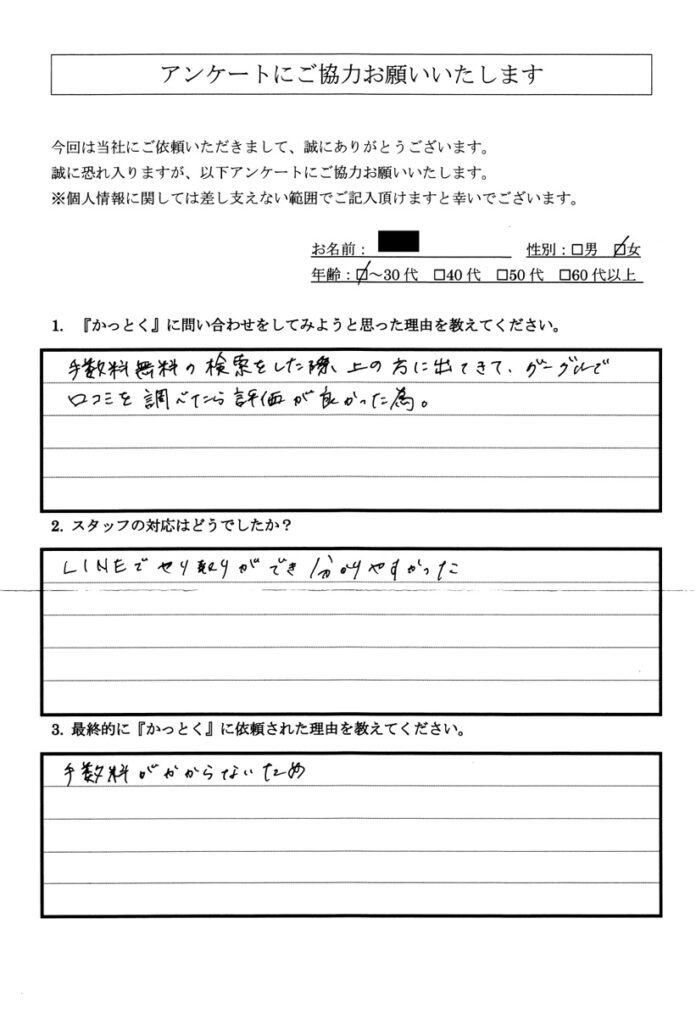 アンケートにご協力お願いいたします
今回は当社にご依頼いただきまして、誠にありがとうございます。
誠に恐れ入りますが、以下アンケートにご協力お願いいたします。
※個人情報に関しては差し支えない範囲でご記入頂けますと幸いでございます。
お名前： 性別：□男 ☑女
年齢：☑～30代 □40代 □50代 □60代以上
1. 『かっとく』に問い合わせをしてみようと思った理由を教えてください。
手数料無料の検索をした際、上の方に出てきて、グーグルで
口コミを調べたら評価が良かった為。
2. スタッフの対応はどうでしたか？
LINEでやり取りができ分かりやすかった
3. 最終的に『かっとく』に依頼された理由を教えてください。
手数料がかからないため